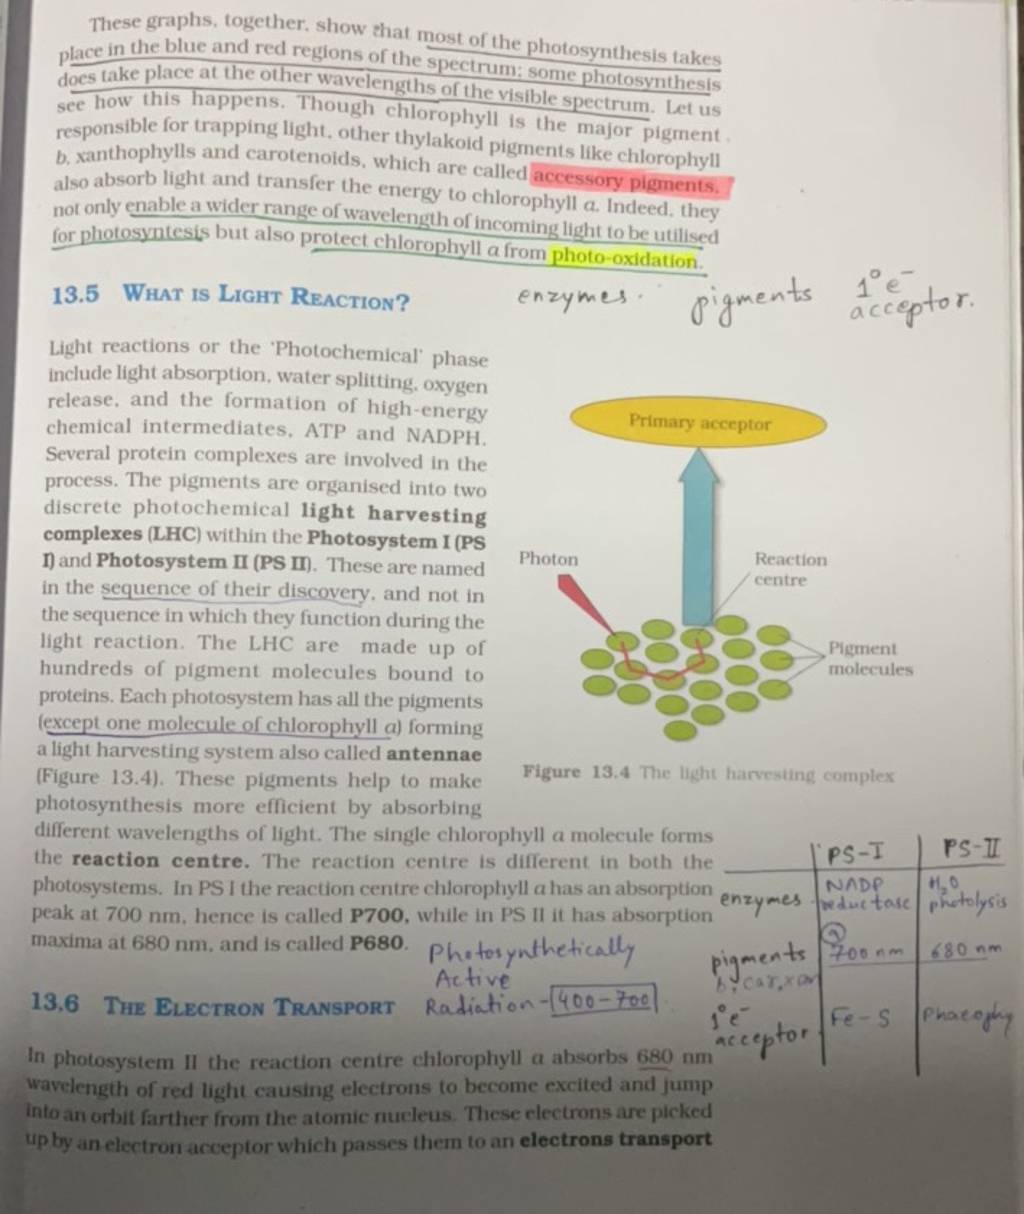 These graphs, together, show that most of the photosynthesis takes
place in the blue and red regions of the spectrum; some photosynthesis
does take place at the other wavelengths of the visible spectrum. Let us
see how this happens. Though chlorophyll is the major pigment
responsible for trapping light, other thylakoid pigments like chlorophyll
b, xanthophylls and carotenoids, which are called accessory pigments,
also absorb light and transfer the energy to chlorophyll a. Indeed, they
not only enable a wider range of wavelength of incoming light to be utilised
for photosyntesis but also protect chlorophyll a from photo-oxidation.
enzymes. pigments 1° e⁻
acceptor.
13.5 WHAT IS LIGHT REACTION?
Light reactions or the 'Photochemical' phase
include light absorption, water splitting, oxygen
release, and the formation of high-energy
chemical intermediates, ATP and NADPH.
Several protein complexes are involved in the
process. The pigments are organised into two
discrete photochemical light harvesting
complexes (LHC) within the Photosystem I (PS
I) and Photosystem II (PS II). These are named
in the sequence of their discovery, and not in
the sequence in which they function during the
light reaction. The LHC are made up of
hundreds of pigment molecules bound to
proteins. Each photosystem has all the pigments
(except one molecule of chlorophyll a) forming
a light harvesting system also called antennae
(Figure 13.4). These pigments help to make
photosynthesis more efficient by absorbing
different wavelengths of light. The single chlorophyll a molecule forms
the reaction centre. The reaction centre is different in both the
photosystems. In PS I the reaction centre chlorophyll a has an absorption
peak at 700 nm, hence is called P700, while in PS II it has absorption
maxima at 680 nm, and is called P680.
Primary acceptor
Photon
Reaction
centre
Pigment
molecules
Figure 13.4 The light harvesting complex
PS-I PS-II
enzymes NADP
reductase H₂O
photolysis
pigments
b, car, xan
a
700 nm 680 nm
1° e⁻
acceptor Fe-S Phaeophy
Photosynthetically
Active
Radiation - 400-700
13.6 THE ELECTRON TRANSPORT
In photosystem II the reaction centre chlorophyll a absorbs 680 nm
wavelength of red light causing electrons to become excited and jump
into an orbit farther from the atomic nucleus. These electrons are picked
up by an electron acceptor which passes them to an electrons transport